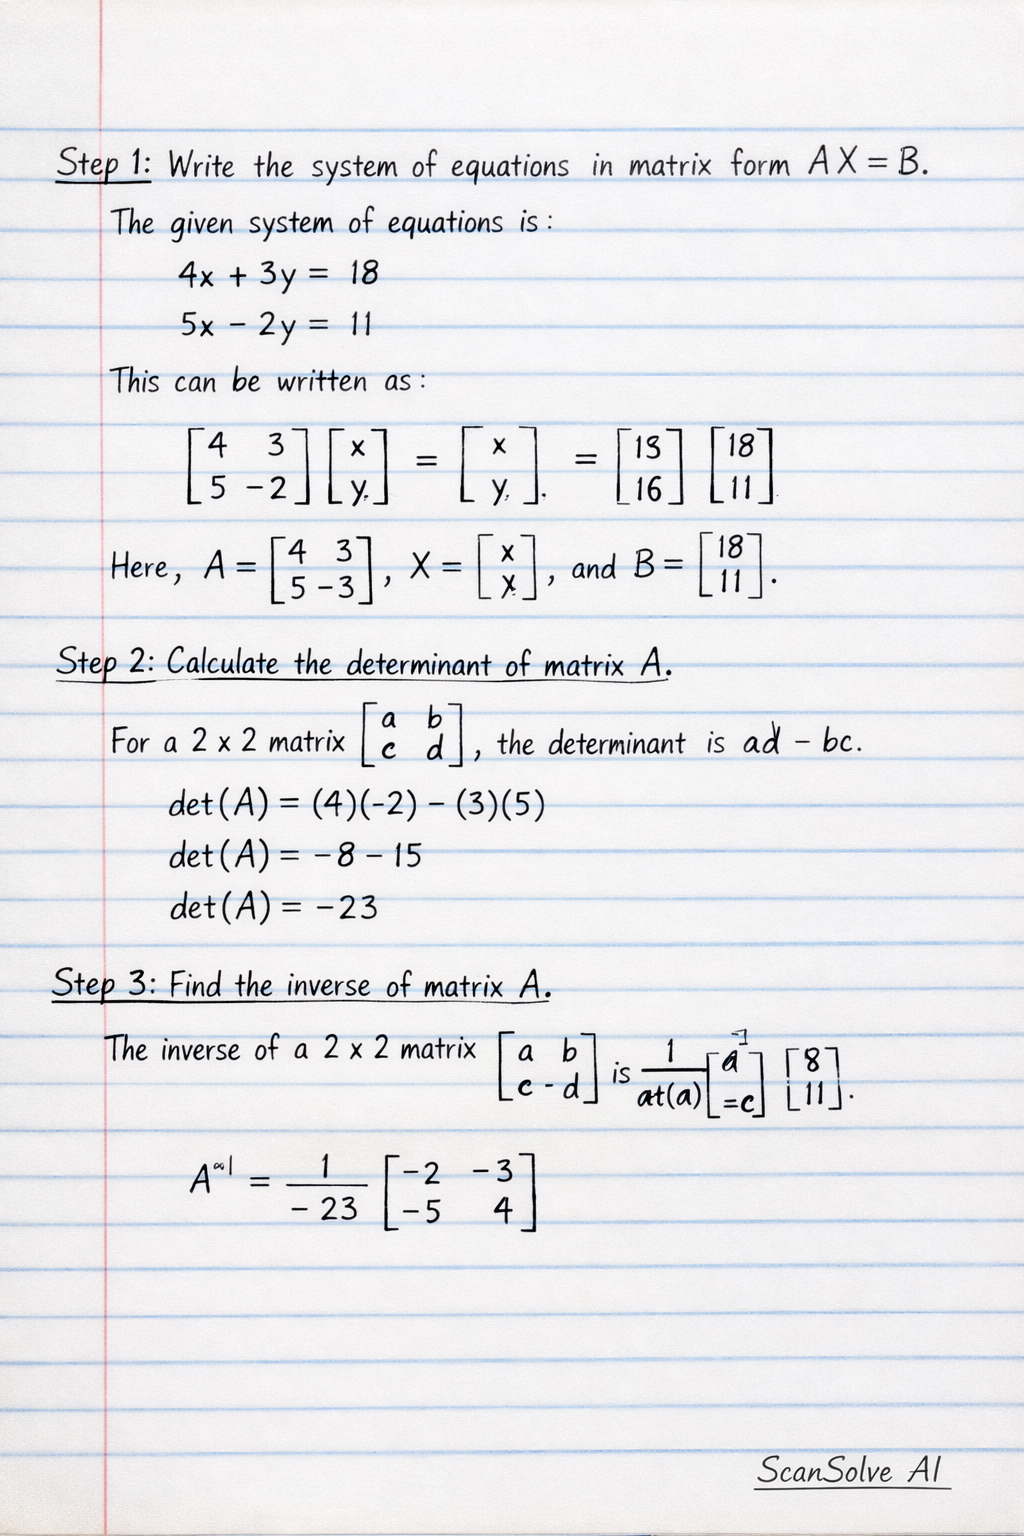 Step 1: Write the system of equations in matrix form AX = B.
The given system of equations is:
4x + 3y = 18
5x - 2y = 11
This can be written as:
[4 3; 5 -2] [x; y.] = [x; y.]. = [13; 16] [18; 11]
Here, A = [4 3; 5 -3], X = [x; x], and B = [18; 11].
Step 2: Calculate the determinant of matrix A.
For a 2 x 2 matrix [a b; c d], the determinant is ad - bc.
det(A) = (4)(-2) - (3)(5)
det(A) = -8 - 15
det(A) = -23
Step 3: Find the inverse of matrix A.
The inverse of a 2 x 2 matrix [a b; c -d] is 1/at(a) [a; =c] [8; 11].
A^∞1 = 1/-23 [-2 -3; -5 4]
ScanSolve AI